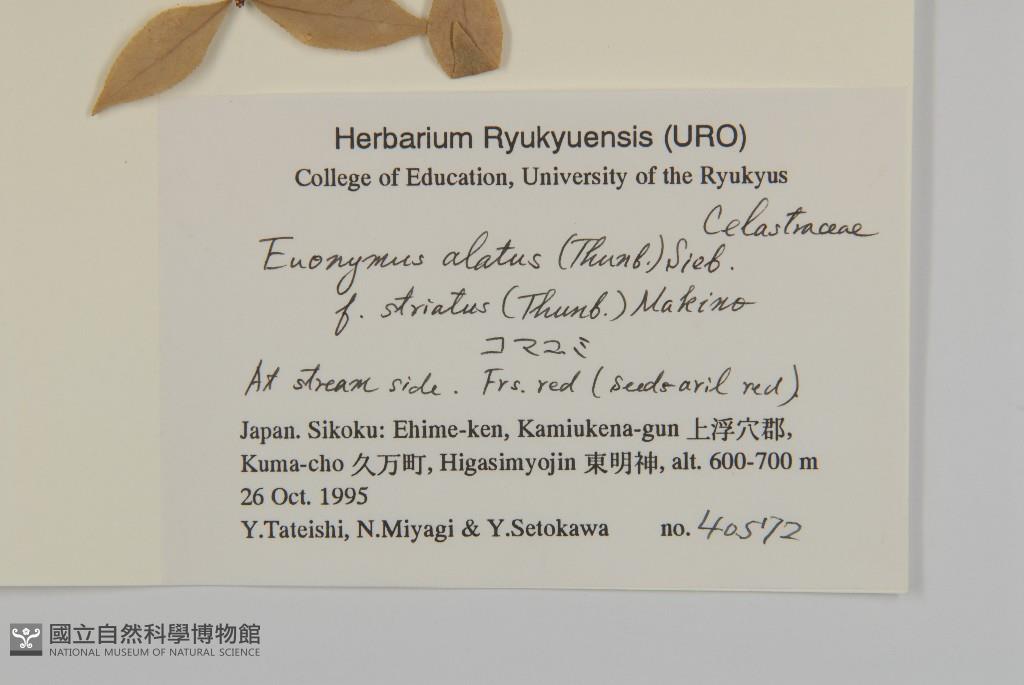 Herbarium Ryukyuensis (URO)
College of Education, University of the Ryukyus
Celastraceae
Euonymus alatus (Thunb.) Sieb.
f. striatus (Thunb.) Makino
コマユミ
At stream side. Frs. red (seeds-aril red).
Japan. Sikoku: Ehime-ken, Kamiukena-gun 上浮穴郡,
Kuma-cho 久万町, Higasimyojin 東明神, alt. 600-700 m
26 Oct. 1995
Y.Tateishi, N.Miyagi & Y.Setokawa no. 40572
國立自然科學博物館
NATIONAL MUSEUM OF NATURAL SCIENCE